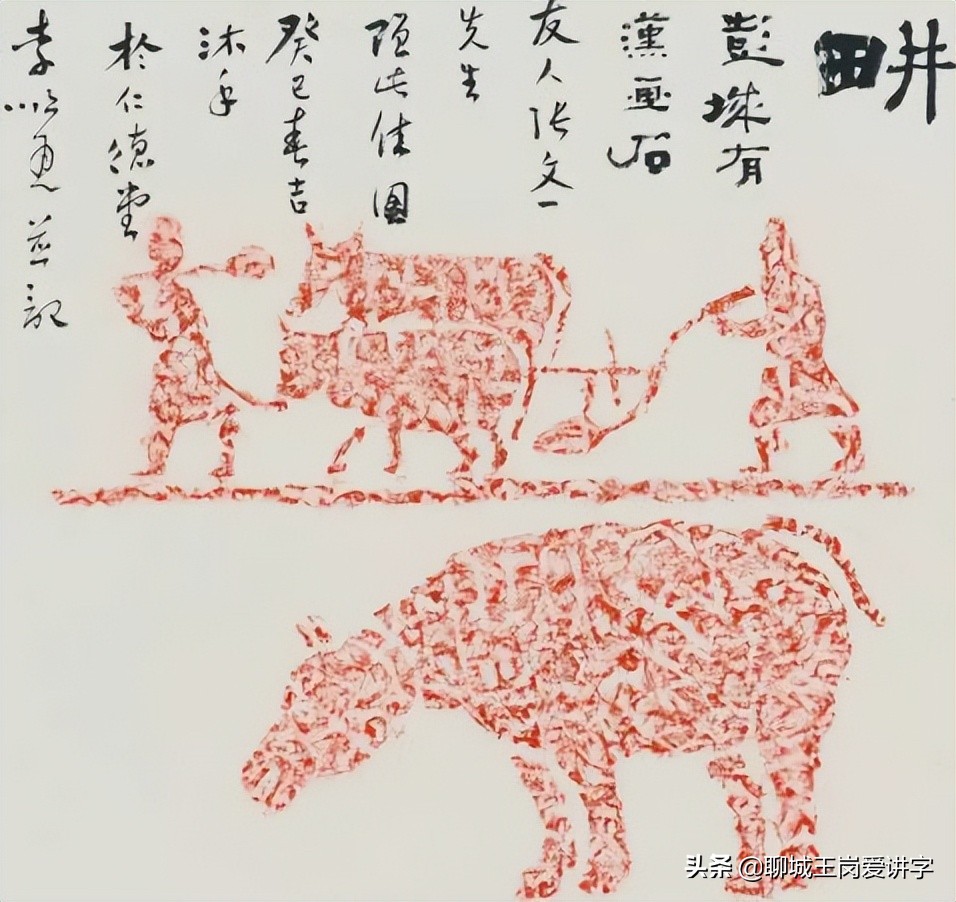 畊
彭城有
漢画石
友人张文一
先生
此佳圖
癸巳春吉
沐手
於仁德堂
李並記
头条 @聊城王岗爱讲字